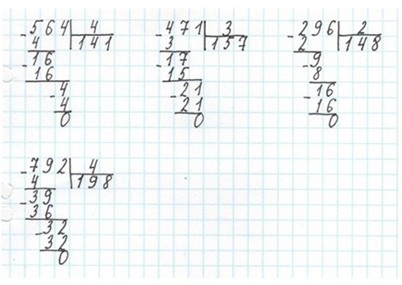 -564|4
4 |141
-16
16
-4
4
0
-471|3
3 |157
-17
15
-21
21
0
-296|2
2 |148
-9
8
-16
16
0
-792|4
4 |198
-39
36
-32
32
0